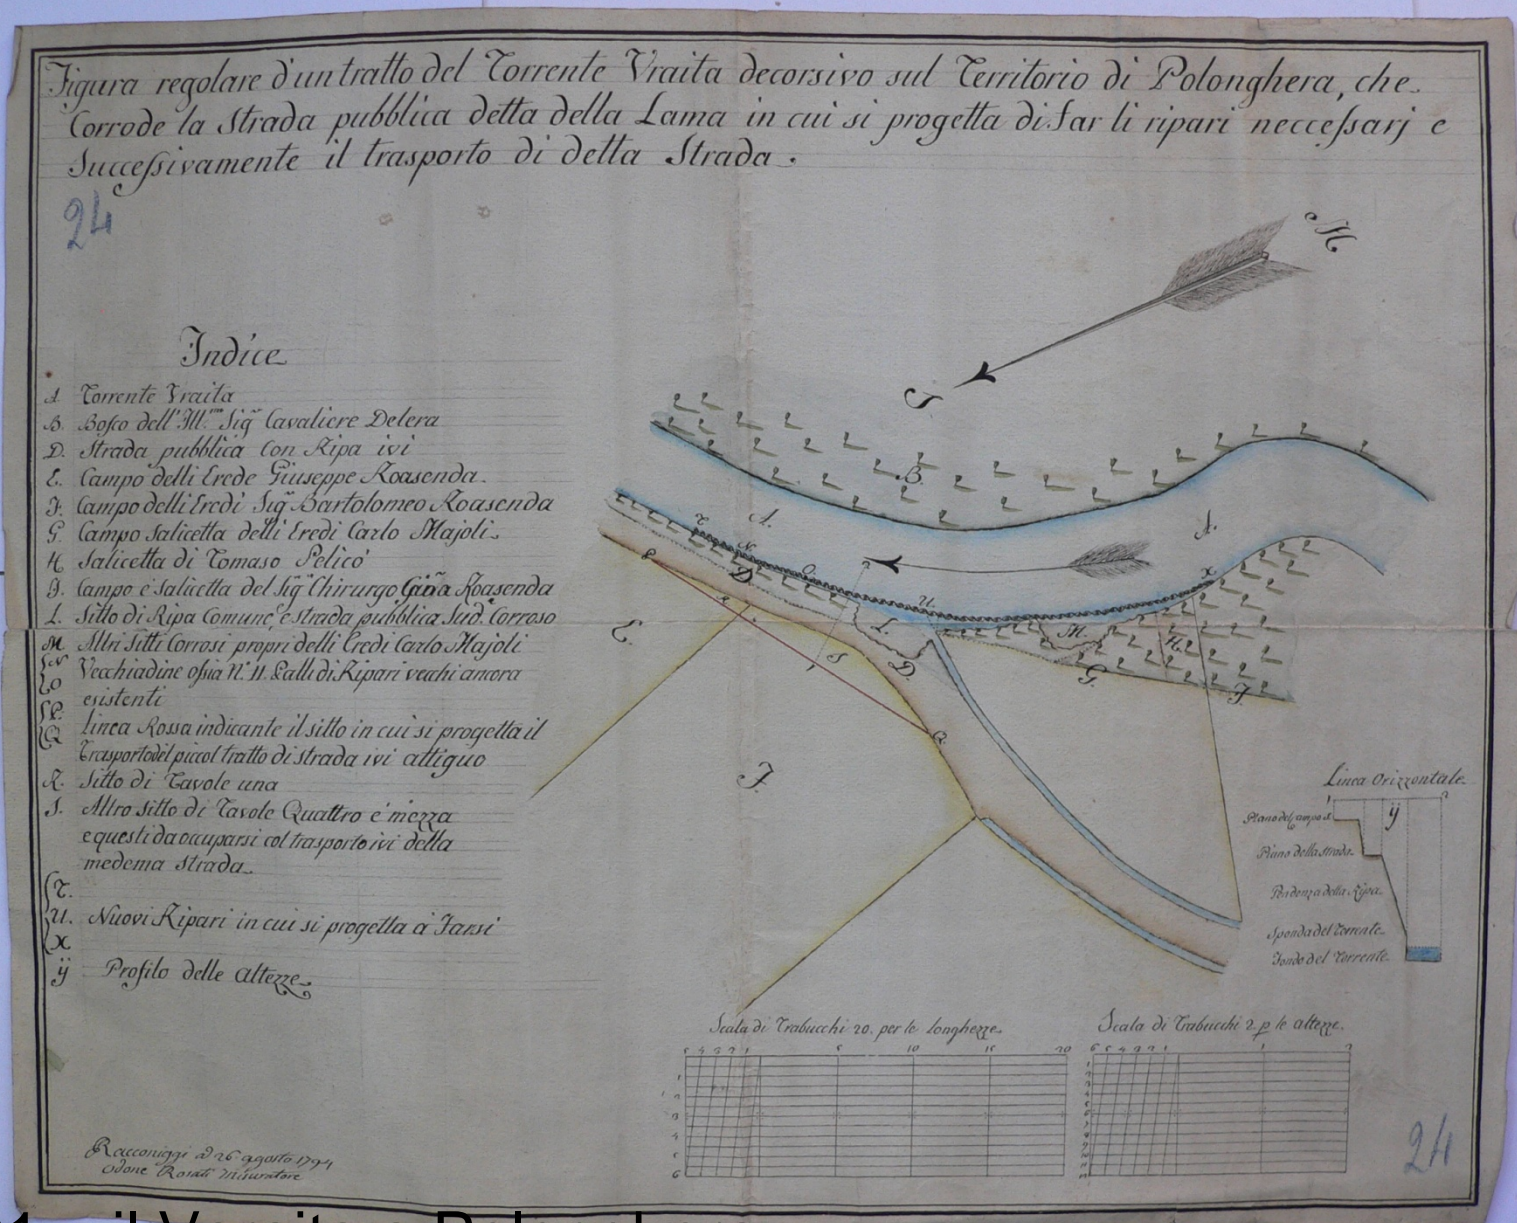 Figura regolare d'un tratto del Torrente Vraita decorsivo sul Territorio di Polonghera, che
Corrode la Strada pubblica detta della Lama in cui si progetta di far li ripari neccessarj e
Successivamente il trasporto di detta Strada.
24
M
S
Indice
A. Torrente Vraita
B. Bosco dell'Ill.mo Sig.r Cavaliere Delera
D. Strada pubblica con Ripa ivi
E. Campo delli Erede Giuseppe Roasenda
F. Campo delli Eredi Sig.r Bartolomeo Roasenda
G. Campo Salicetta delli Eredi Carlo Majoli
H. Salicetta di Tomaso Pelicò
J. Campo e Salicetta del Sig.r Chirurgo Roasenda
L. Sitto di Ripa Comune, e strada pubblica Sud.a Corroso
M Altri Sitti Corrosi propri delli Eredi Carlo Majoli
N O Vecchiadine ossia N.° 11. Palli di Ripari vecchi ancora
esistenti
P. Q Linea Rossa indicante il sitto in cui si progetta il
Trasporto del piccol tratto di strada ivi attiguo
R. Sitto di Tavole una
S. Altro sitto di Tavole Quattro e mezza
e questi da occuparsi col trasporto ivi della
medema strada
T.
U. Nuovi Ripari in cui si progetta à Farsi
X
ÿ Profilo delle altezze
B.
A.
A.
T
N
O
U.
X
D
P
R
E.
L.
M.
H.
S
D.
G.
F.
Q
F.
Linea Orizzontale
ÿ
Piano del Campo S.
Piano della strada
Pendenza della Ripa
Sponda del Torrente
Fondo del Torrente
Scala di Trabucchi 20. per le longhezze
5 4 3 2 1 5 10 15 20
Scala di Trabucchi 2. p le altezze
6 5 4 3 2 1 1 2
Racconiggi ad 26 agosto 1794
Odone Rosati Misuratore
24